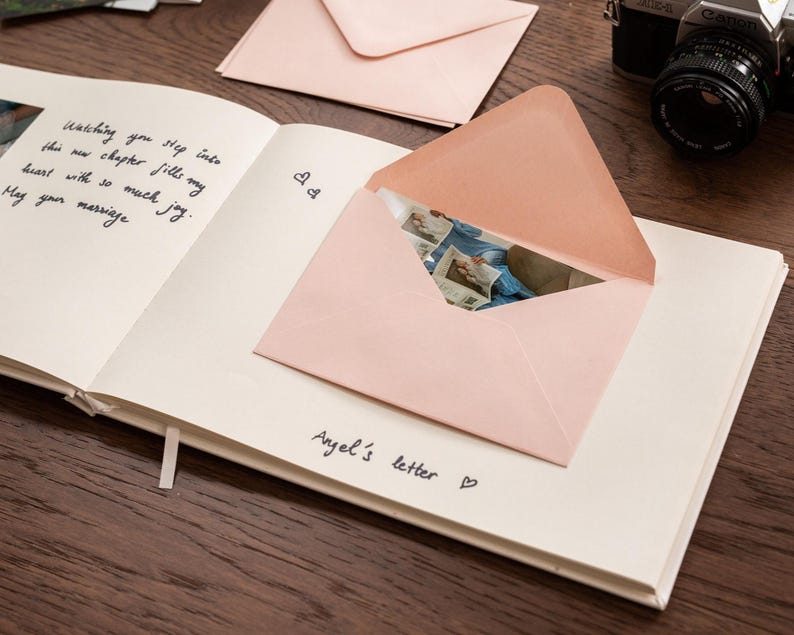 Watching you step into
this new chapter fills my
heart with so much joy.
May your marriage
Angel's letter
AE-1
Canon
CANON LENS MADE IN JAPAN